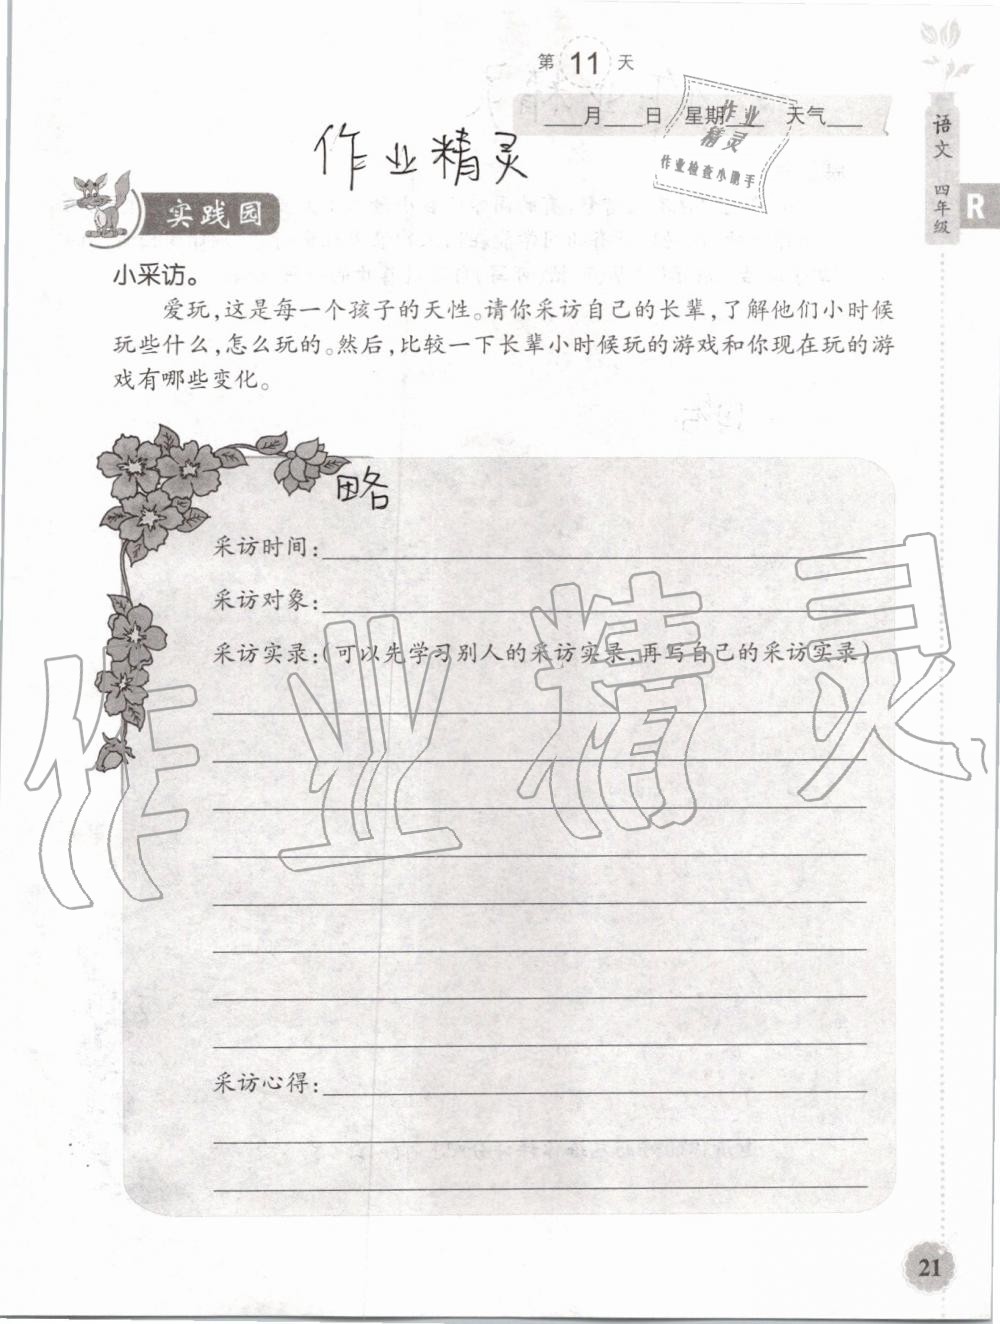 第 11 天
___月___日 星期___ 天气___
作业
精灵
作业检查小助手
作业精灵
语文 四年级
R
实践园
小采访。
爱玩,这是每一个孩子的天性。请你采访自己的长辈,了解他们小时候
玩些什么,怎么玩的。然后,比较一下长辈小时候玩的游戏和你现在玩的游
戏有哪些变化。
略
采访时间:
采访对象:
采访实录:(可以先学习别人的采访实录,再写自己的采访实录)
作业精灵
采访心得:
21